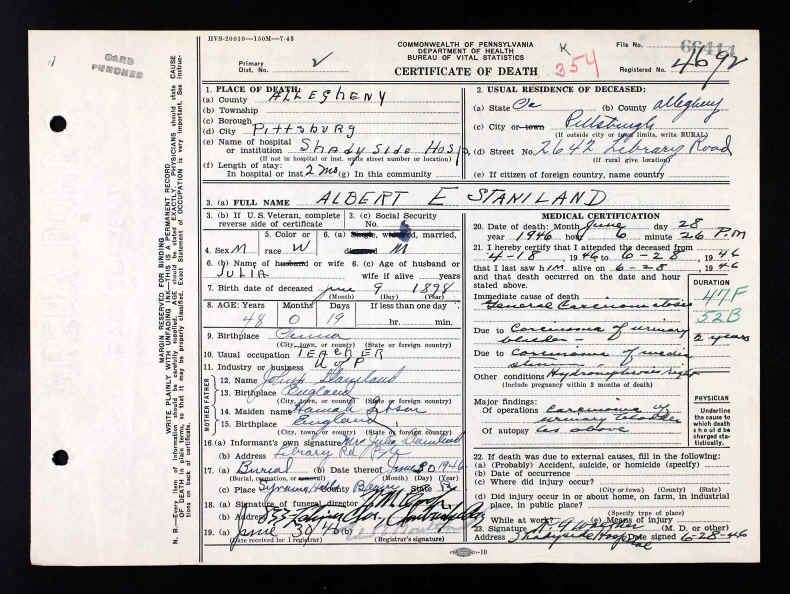 HVS-20010—150M—7-45
CARD
PUNCHED
MARGIN RESERVED FOR BINDING
WRITE PLAINLY WITH UNFADING INK—THIS IS A PERMANENT RECORD
N. B.—Every item of information should be carefully supplied. AGE should be stated EXACTLY. PHYSICIANS should state CAUSE OF DEATH in plain terms, so that it may be properly classified. Exact Statement of OCCUPATION is very important. See instructions on back of certificate.
COMMONWEALTH OF PENNSYLVANIA
DEPARTMENT OF HEALTH
BUREAU OF VITAL STATISTICS
CERTIFICATE OF DEATH
Primary
Dist. No. 2
K
354
File No.
Registered No. 4692
1. PLACE OF DEATH:
(a) County ALLEGHENY
(b) Township
(c) Borough
(d) City PITTSBURG
(e) Name of hospital
or institution SHADYSIDE HOSP.
(If not in hospital or inst. write street number or location)
(f) Length of stay:
In hospital or inst. 2 mos (g) In this community
2. USUAL RESIDENCE OF DECEASED:
(a) State Pa (b) County Allegheny
(c) City or town Pittsburgh
(If outside city or town limits, write RURAL)
(d) Street No. 2642 Library Road
(If rural give location)
(e) If citizen of foreign country, name country
3. (a) FULL NAME ALBERT E STANILAND
3. (b) If U.S. Veteran, complete
reverse side of certificate
3. (c) Social Security
No.
4. Sex M
5. Color or
race W
6. (a) Single, widowed, married,
divorced M
6. (b) Name of husband or wife
JULIA
6. (c) Age of husband or
wife if alive years
7. Birth date of deceased June 9 1898
(Month) (Day) (Year)
8. AGE: Years Months Days If less than one day
48 0 19 hr. min.
9. Birthplace Penna
(City, town, or county) (State or foreign country)
10. Usual occupation TEACHER
11. Industry or business U of P
FATHER
12. Name John Staniland
13. Birthplace England
(City, town, or county) (State or foreign country)
MOTHER
14. Maiden name Hannah
15. Birthplace England
(City, town, or county) (State or foreign country)
16. (a) Informant's own signature Mrs Julia Staniland
(b) Address Library Rd
17. (a) Burial (b) Date thereof June 30 1946
(Burial, cremation, or removal) (Month) (Day) (Year)
(c) Place County State
18. (a) Signature of funeral director
(b) Address
19. (a) June 30 46 (b)
(Date received for registrar) (Registrar's signature)
MEDICAL CERTIFICATION
20. Date of death: Month June day 28
year 1946 hour 6 minute 26 P.M
21. I hereby certify that I attended the deceased from
4-18, 1946 to 6-28, 1946
that I last saw him alive on 6-28, 1946
and that death occurred on the date and hour
stated above.
DURATION
Immediate cause of death
General Carcinomatosis
47F
52B
Due to Carcinoma of urinary
bladder - 2 years
Due to Carcinoma of
Other conditions Hydronephrosis right
(Include pregnancy within 3 months of death)
Major findings:
Of operations Carcinoma of
urinary bladder
Of autopsy as above
PHYSICIAN
Underline
the cause
to which
death
should be
charged sta-
tistically.
22. If death was due to external causes, fill in the following:
(a) (Probably) Accident, suicide, or homicide (specify)
(b) Date of occurrence
(c) Where did injury occur?
(City or town) (County) (State)
(d) Did injury occur in or about home, on farm, in industrial
place, in public place?
(Specify type of place)
While at work? (e) Means of injury
23. Signature (M. D. or other)
Address Shadyside Hospital Date signed 6-28-46